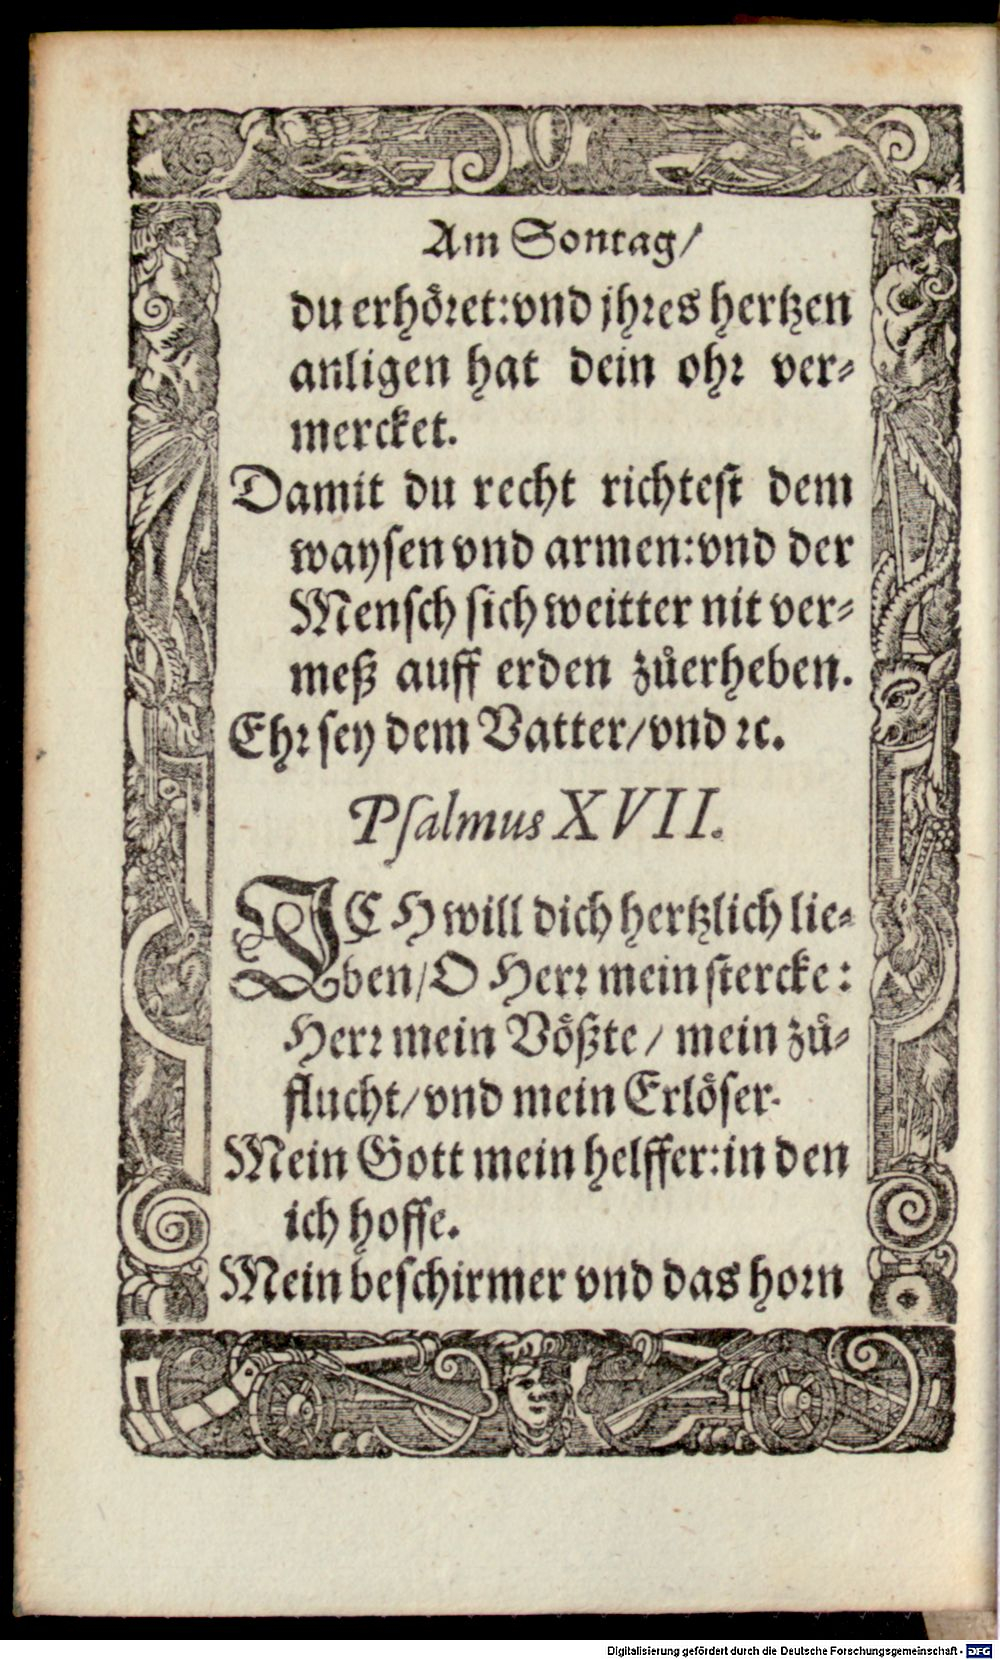 Am Sontag/
du erhöret: vnd jhres hertzen
anligen hat dein ohr ver⸗
mercket.
Damit du recht richtest dem
waysen vnd armen: vnd der
Mensch sich weitter nit ver⸗
meß auff erden zůerheben.
Ehr sey dem Vatter/ vnd ꝛc.
Psalmus XVII.
ICH will dich hertzlich lie⸗
ben/ O Herr mein stercke:
Herr mein Vößte / mein zů⸗
flucht/ vnd mein Erlöser.
Mein Gott mein helffer: in den
ich hoffe.
Mein beschirmer vnd das horn
Digitalisierung gefördert durch die Deutsche Forschungsgemeinschaft - DFG